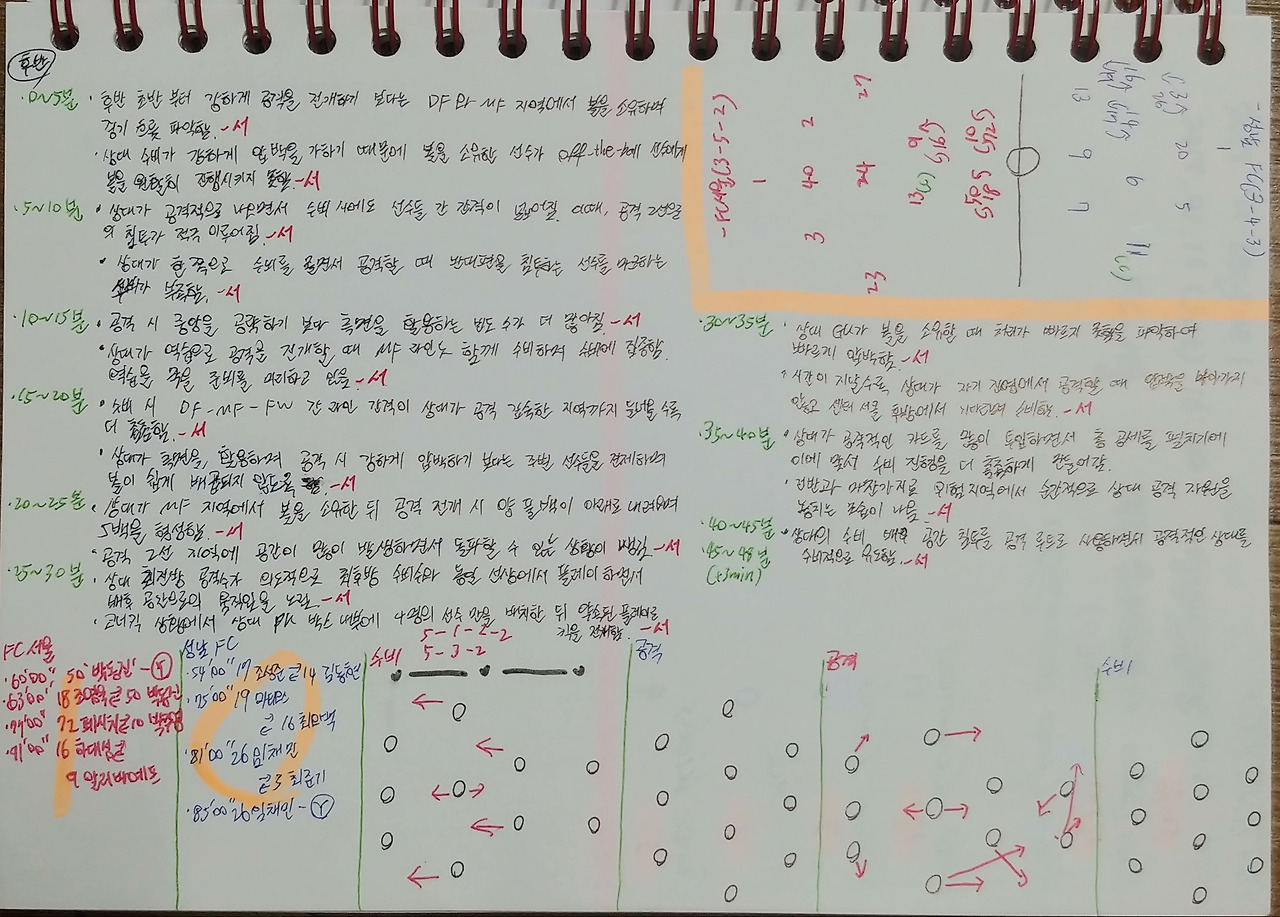 후반
·0~5분 · 후반 초반부터 강하게 공격을 전개하기 보다는 DF와 MF 지역에서 볼을 소유하며
경기 흐름 파악함. -서
· 상대 수비가 강하게 압박을 가하기 때문에 볼을 소유한 선수가 off-the- 선수에게
볼을 원활히 진행시키지 못함. -서
·5~10분 · 상대가 공격적으로 나오면서 수비 시에도 선수들 간 간격이 넓어질 이때, 공격 2선으로
의 침투가 전혀 이루어짐. -서
· 상대가 한 쪽으로 수비를 하면서 공격할 때 반대편을 침투하는 선수를 마크하는
부족함. -서
·10~15분 · 공격 시 중앙을 공략하기 보다 측면을 활용하는 빈도 수가 더 많아짐. -서
· 상대가 역습으로 공격을 전개할 때 MF 라인도 함께 수비하며 수비에 집중함.
역습을 막을 준비를 미리하고 있음. -서
·15~20분 · 수비 시 DF-MF-FW 간 라인 간격이 상대가 공격 깊숙한 지역까지 수록
더 촘촘함. -서
· 상대가 측면을 활용하며 공격 시 강하게 압박하기 보다는 주변 선수들을 견제하며
볼이 쉽게 배급되지 않도록 함. -서
·20~25분 · 상대가 MF 지역에서 볼을 소유한 뒤 공격 전개 시 양 풀백이 아래로 내려오며
5백을 형성함. -서
· 공격 2선 지역에 공간이 많이 발생하면서 돌파할 수 있는 상황이 생김. -서
·25~30분 · 상대 최전방 공격수가 의도적으로 최후방 수비수와 동일 선상에서 플레이하면서
배후 공간으로의 움직임을 노림. -서
· 코너킥 상황에서 상대 PK 박스 내부에 4명의 선수만을 배치한 뒤 약속된 플레이로
킥을 전개함. -서
- FC서울(3-5-2)
1
3 40 2
23 24 27
13(s) 9
- 성남 FC(3-4-3)
1
5 20
26
3
11(s) 6
19
16
7 9 13
·30~35분 · 상대 GK가 볼을 소유할 때 처리가 빠르지 못함을 파악하여
빠르게 압박함. -서
· 시간이 지날수록 상대가 자기 진영에서 공격할 때 압박을 나가지
않고 센터서클 후방에서 기다리며 수비함. -서
·35~40분 · 상대가 공격적인 카드를 많이 투입하면서 총 공세를 펼치기에
이에 맞서 수비 진형을 더 촘촘하게 만들어감.
· 전반과 마찬가지로 위험지역에서 순간적으로 상대 공격 자원을
놓치는 모습이 나옴. -서
·40~45분 · 상대의 수비 배후 공간 침투를 공격 루트로 사용하면서 공격적인 상대를
·45~48분 수비적으로 유도함. -서
(+3min)
FC서울
·60'00" 50' 박동진 - Y
·63'00" 18 조영욱 ⇄ 50 박동진
·77'00" 72 페시치 ⇄ 10 박주영
·91'00" 16 하대성 ⇄
9 알리바예프
성남 FC
·54'00" 17 조성준 ⇄ 14 김동현
·75'00" 19 마티아스
⇄ 16 최오백
·81'00" 26 임채민
⇄ 3 최준기
·85'00" 26 임채민 - Y
수비
5-1-2-2
5-3-2
공격
공격
수비